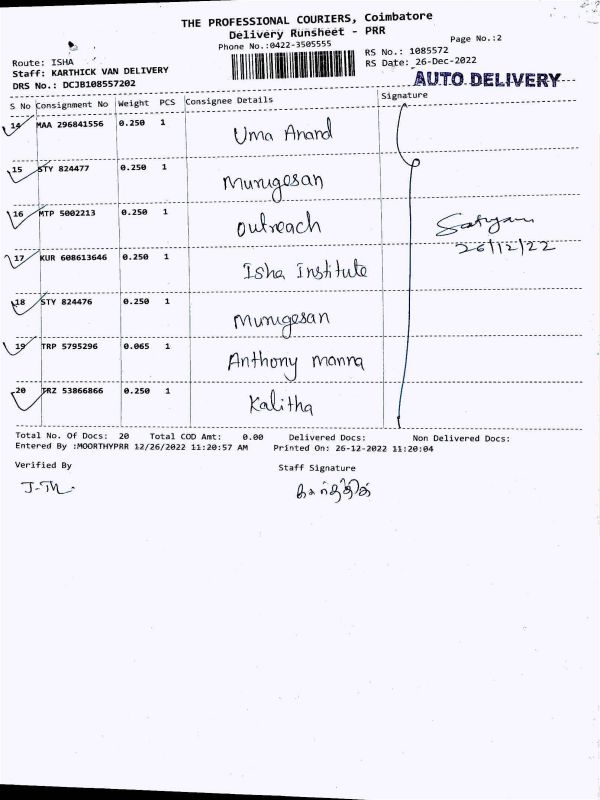 THE PROFESSIONAL COURIERS, Coimbatore
Delivery Runsheet - PRR
Phone No.:0422-3505555
Page No.:2
Route: ISHA
RS No.: 1085572
Staff: KARTHICK VAN DELIVERY
RS Date: 26-Dec-2022
DRS No.: DCJB108557202
AUTO DELIVERY
S No Consignment No Weight PCS Consignee Details Signature
14 MAA 296841556 0.250 1 Uma Anand
15 STY 824477 0.250 1 Murugesan
16 MTP 5002213 0.250 1 Outreach
Satyam
26/12/22
17 KUR 608613646 0.250 1 Isha Institute
18 STY 824476 0.250 1 Murugesan
19 TRP 5795296 0.065 1 Anthony manna
20 TRZ 53866866 0.250 1 Kalitha
Total No. Of Docs: 20 Total COD Amt: 0.00 Delivered Docs: Non Delivered Docs:
Entered By :MOORTHYPRR 12/26/2022 11:20:57 AM Printed On: 26-12-2022 11:20:04
Verified By Staff Signature
கார்த்திக்